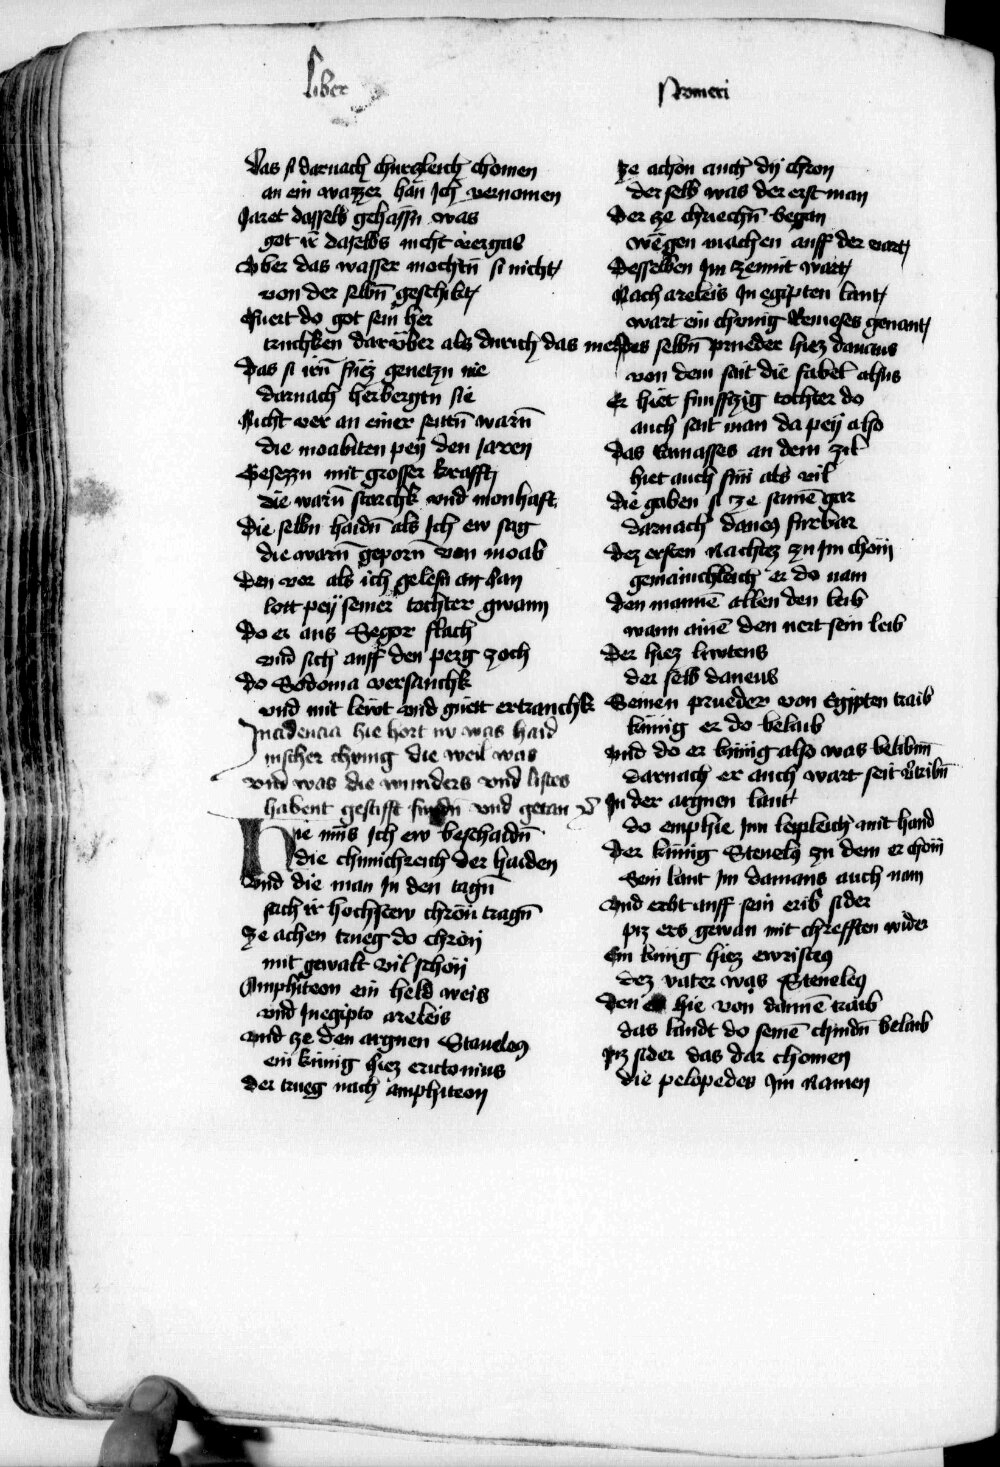 Liber
Nomeri
Das si darnach churczleich chomen
an ein wazzer han ich vernomen
Jaret dasselb gehassñ was
got ir daselbs nicht vergas
Vber das wasser mochtñ si nicht
von der selbñ geschikt
Fuert do got sein her
truchken darüber als durich das mer
Das si irñ fuez genetzn nie
darnach herbergtn sie
Nicht ver an einer seittñ warñ
die moabiten pey den Jaren
Gesezzn mit grosser krafft
die warñ starchk vnd monhaft
Die selbn haidñ als ich ew sag
die warñ geporñ von moab
Den vor als ich gelesñ han
lott pey seiner tochter gwann
Do er aus Segor flach
vnd sich auff den perg zoch
Do Sodoma versanchk
vnd mit lewt vnd guett ertranchk
Incidencia hie hort nv was haid
nischer chvnig die weil was
vnd was die wunders vnd listes
habent gestifft vnd getan
Hie mus ich ew beschaidñ
die chunichreich der haiden
Vnd die man in den tagñ
sach ir hochstew chron tragñ
Ze achen trueg do chron
mit gewalt vil schon
Amphiteon ein held weis
vnd Inegipto areleis
vnd ze den argnen Staveleus
ein kunig hiez erictonius
der trueg nach amphiteon
ze achon auch dy chron
der selb was der erst man
Der ze chriechñ began
wegen machen auff der vart
Desselben Im zennit wart
Nach areleis In egipten lant
wart ein chvnig Remeses genant
Des selbñ prueder hiez danaus
von dem sait die fabel alsus
Er hiet funffzig tochter do
auch sait man da pey also
Das Ramasses an dem zil
hiet auch sun als vil
die gaben si ze same gar
darnach daneus furbar
Dez ersten nachtez zu Im chom
gemainchleich er do nam
den mannē allen den leib
wann ainē den nert sein leib
Der hiez linotens
der selb daneus
Seinen prueder von Egipten traib
kunig er do belaib
vnd do er kunig also was belibnn
darnach er auch wart seit vertribñ
In der argnen lant
do emphie Inn leipleich mit hand
Der kunig Steneleus zu dem er chom
Sein lant Im danaus auch nam
vnd erbt auff sein erib sider
piz ers gewan mit chrefften wider
Ein kunig hiez ewristeus
dez vater was Steneleus
Den hie von dannē traib
das landt do seinē chindñ belaib
piz sider das dar chomen
die pelopedes Im namen